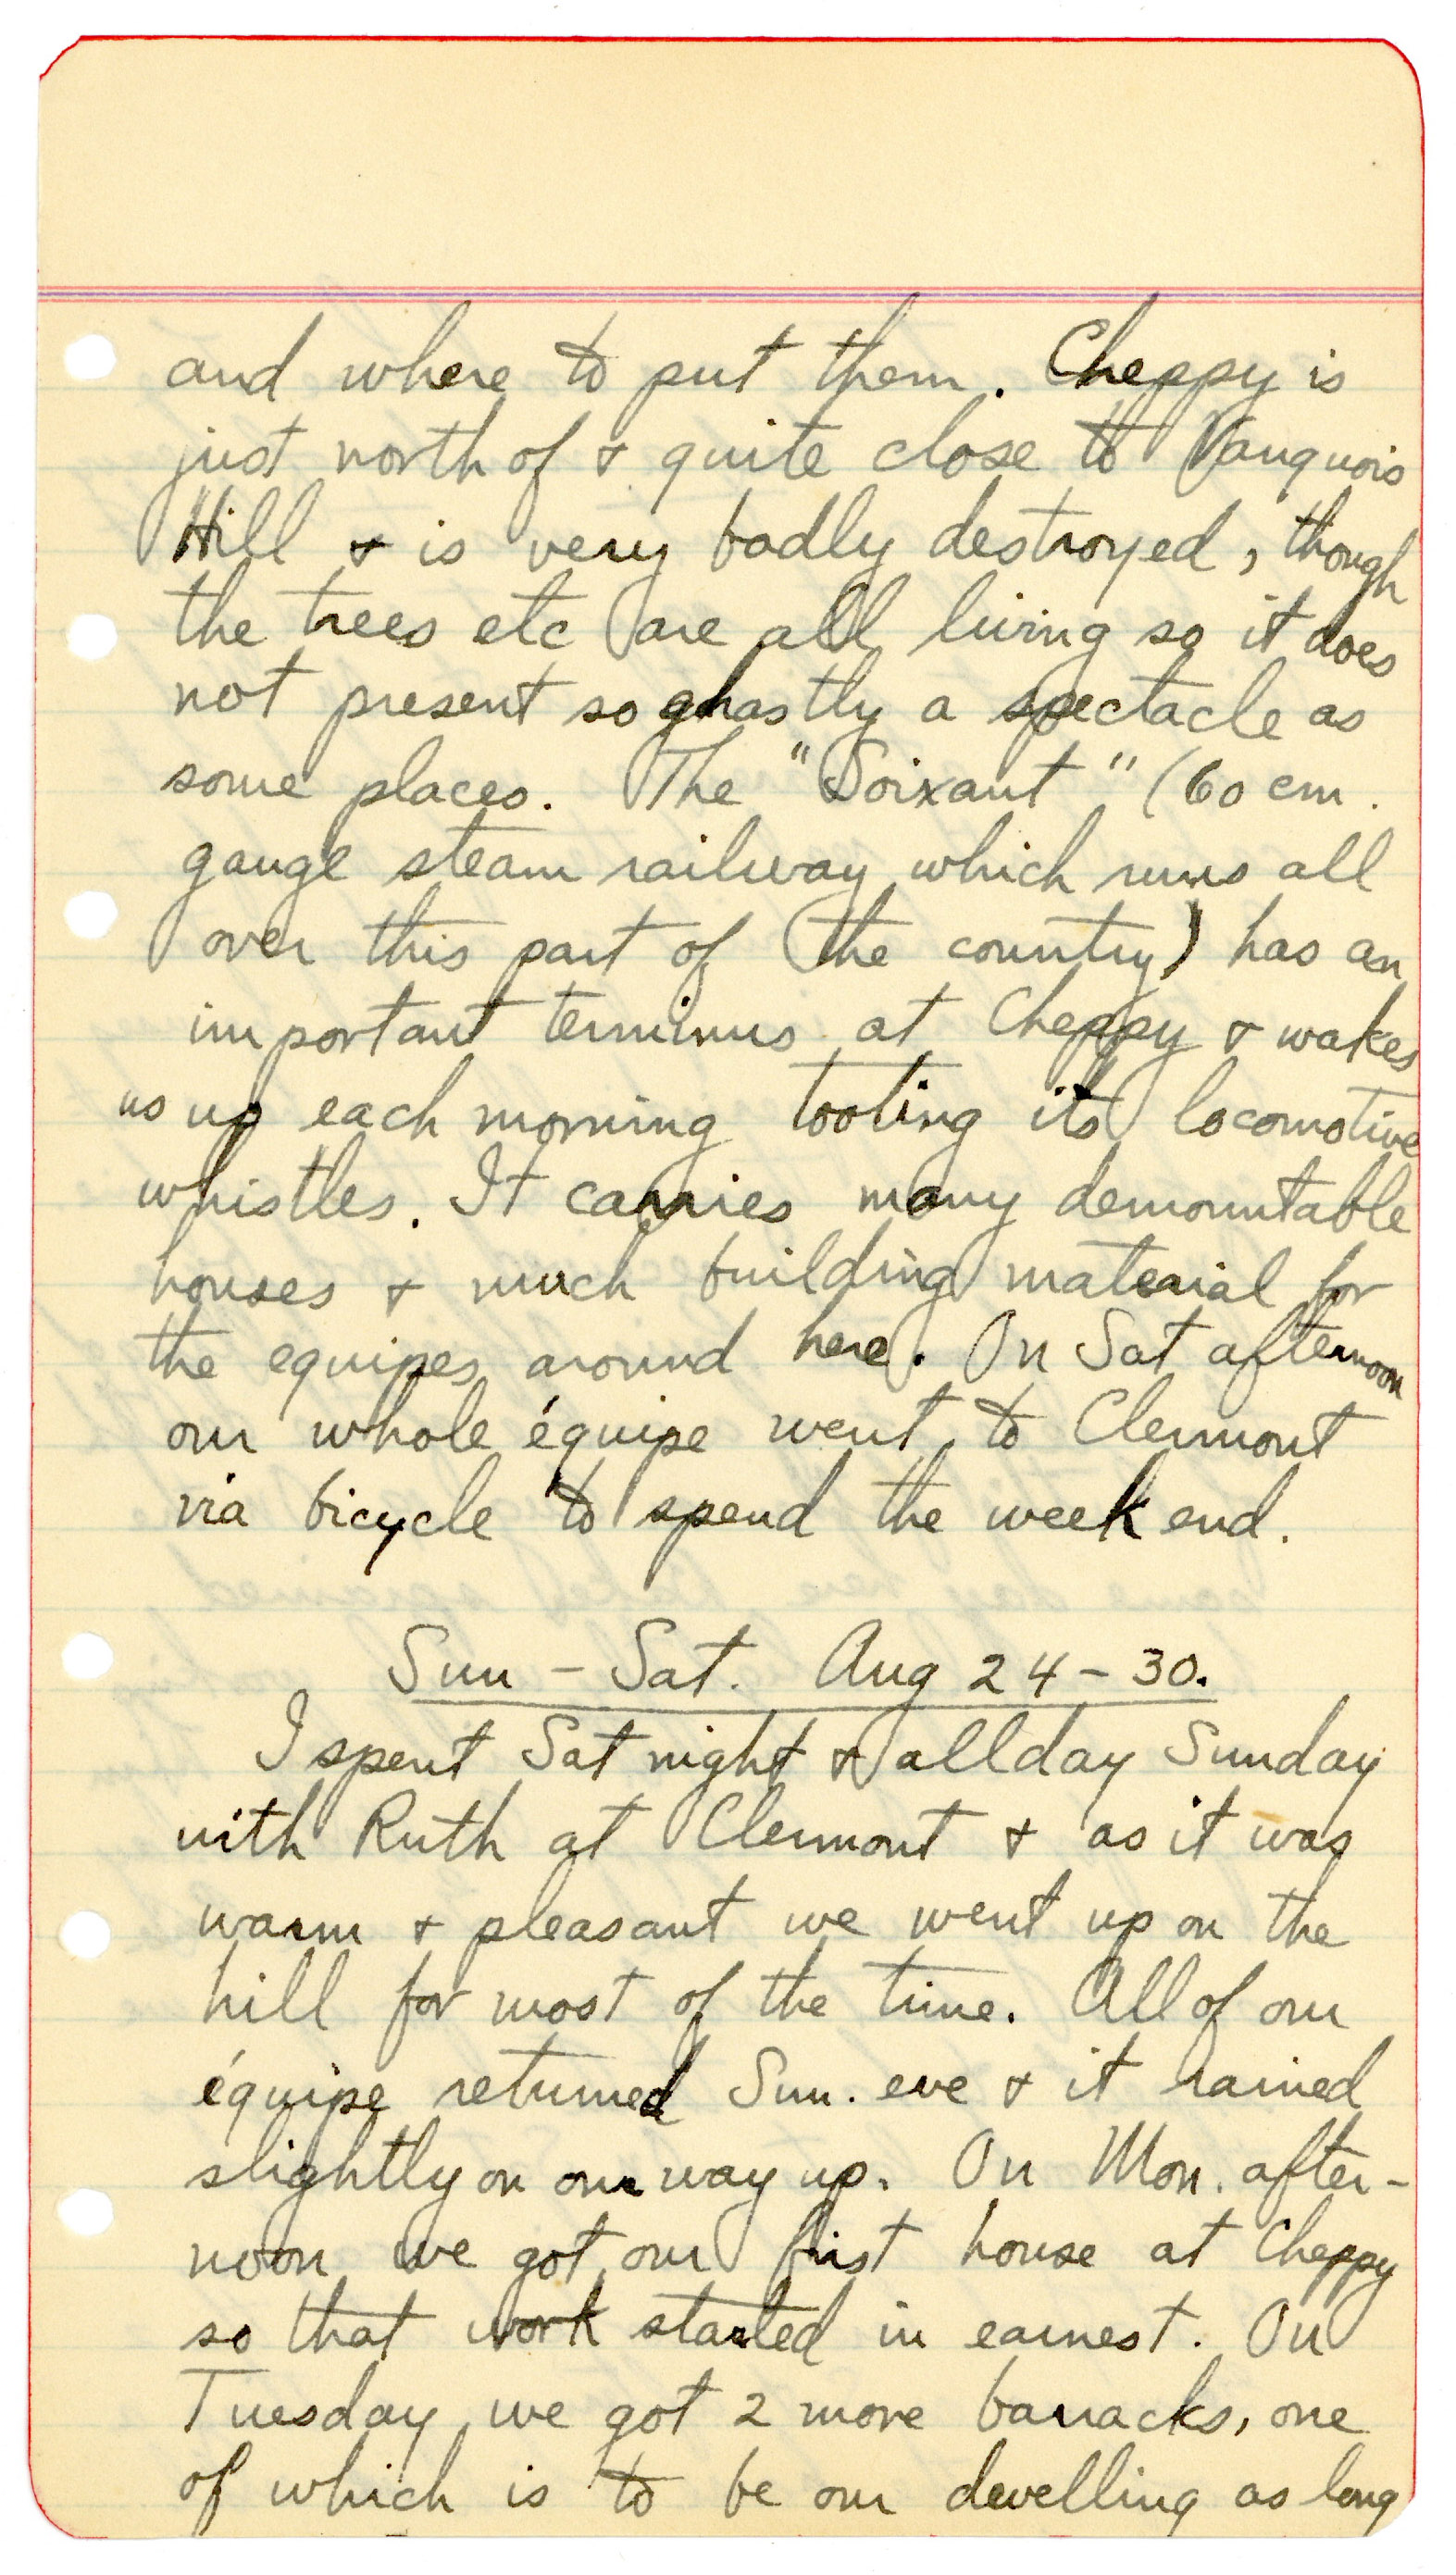 and where to put them. Cheppy is
just north of & quite close to Vauquois
Hill & is very badly destroyed, though
the trees etc are all living so it does
not present so ghastly a spectacle as
some places. The "Soixant" (60 cm.
gauge steam railway which runs all
over this part of the country) has an
important terminus at Cheppy & wakes
us up each morning tooting its locomotive
whistles. It carries many demountable
houses & much building material for
the equipes around here. On Sat afternoon
our whole équipe went to Clermont
via bicycle to spend the week end.
Sun - Sat. Aug 24 - 30.
I spent Sat night & all day Sunday
with Ruth at Clermont & as it was
warm & pleasant we went up on the
hill for most of the time. All of our
équipe returned Sun. eve & it rained
slightly on our way up. On Mon. after-
noon we got our first house at Cheppy
so that work started in earnest. On
Tuesday we got 2 more barracks, one
of which is to be our dwelling as long